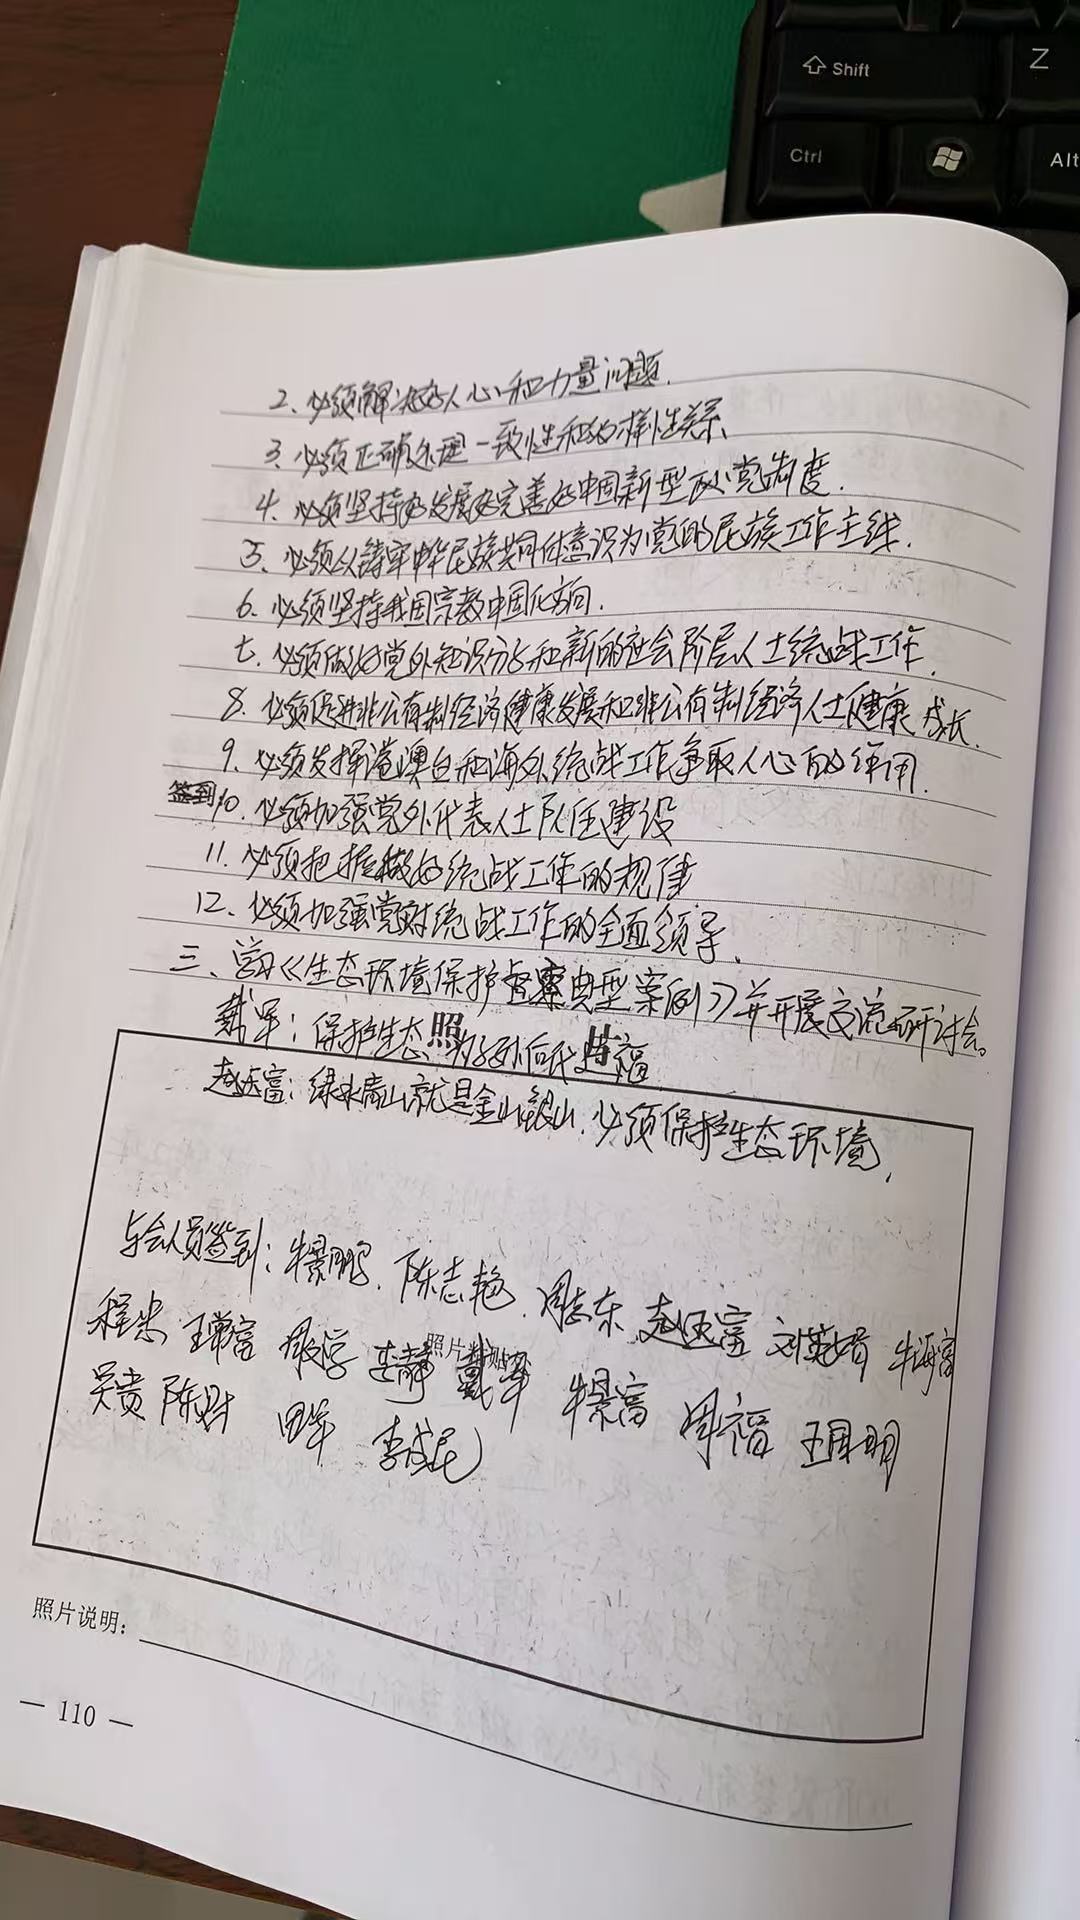 Shift
Z
Ctrl
Alt
2、必须解决好人心和力量问题.
3、必须正确处理一致性和多样性关系、
4、必须坚持好发展好完善好中国新型政党制度.
5、必须以铸牢中华民族共同体意识为党的民族工作主线.
6、必须坚持我国宗教中国化方向.
七、必须做好党外知识分子和新的社会阶层人士统战工作.
8、必须促进非公有制经济健康发展和非公有制经济人士健康成长.
9、必须发挥港澳台和海外统战工作争取人心的作用.
签到
10、必须加强党外代表人士队伍建设
11、必须把握做好统战工作的规律
12、必须加强党对统战工作的全面领导.
三、学习《生态环境保护督察典型案例》并开展交流研讨会。
戴军:保护生态、为子孙后代造福
照 片
赵廷富:绿水青山就是金山银山.必须保护生态环境.
与会人员签到:牛景鹏、陈志艳、周志东 赵廷富 牛海富
程忠 王常富 李静 戴军 牛景富 周福 王国明
照片粘贴
吴贵 陈财 田军 李成民
照片说明:
— 110 —